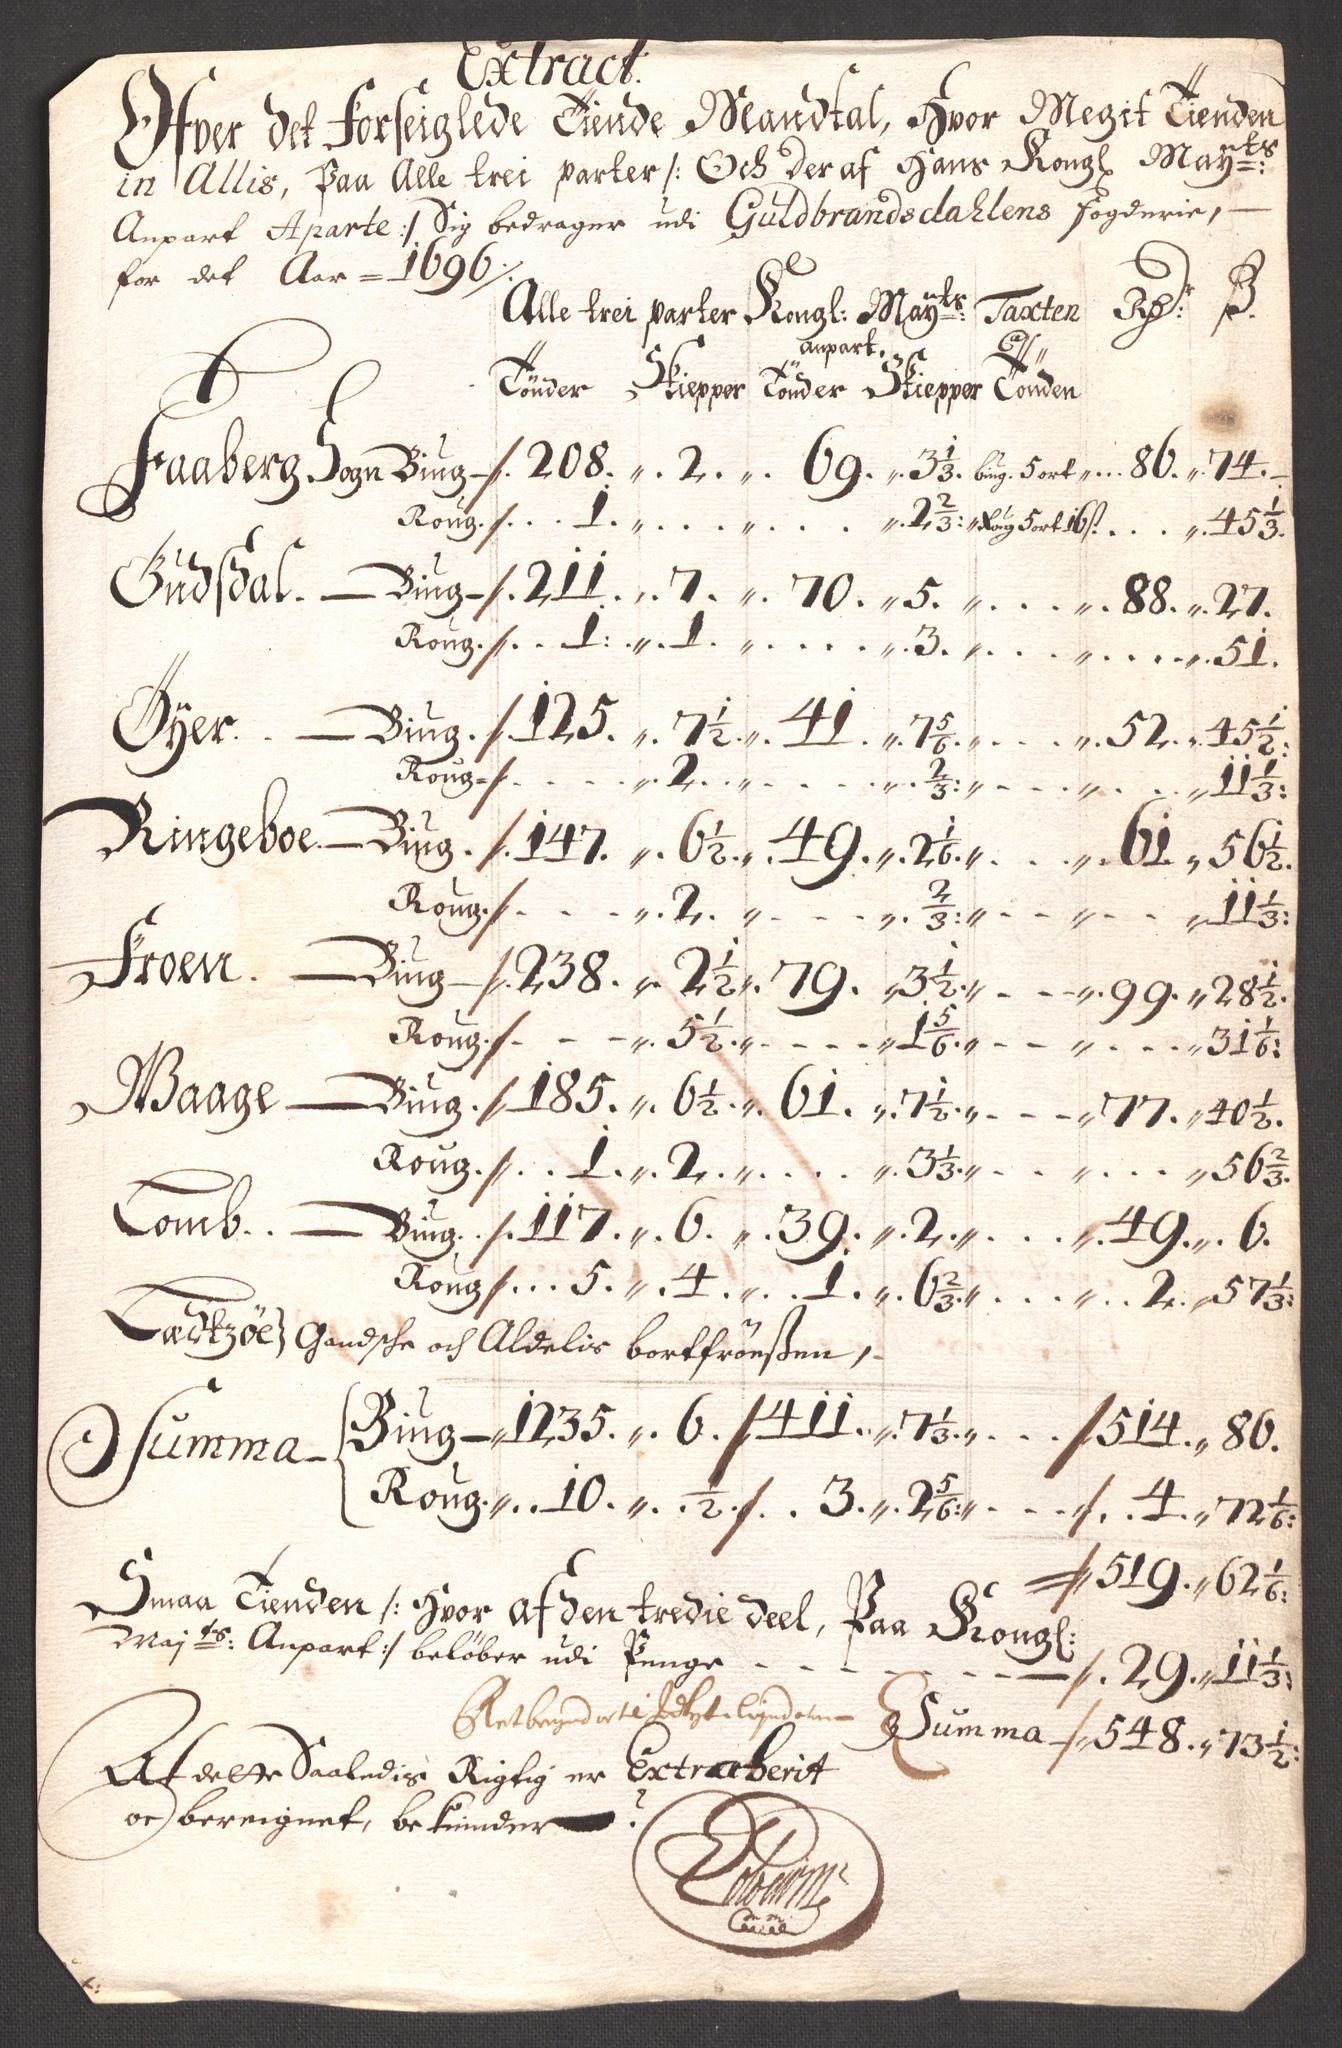 Extract.
Ofver det Forseiglede Tiende Mandtal, Hvor Megit Tienden
in Allis, Paa Alle trei parter /: Och der af Hans Kongl Mayts:
Anpart Aparte :/ Sig bedrager udi Guldbrandsdahlens Fogderie, —
for det Aar = 1696 /.
Alle trei parter Kongl: Mayts: Taxten Rdr: ß.
anpart.
Tönder Skiepper Tönder Skiepper Tönden
Faaberg Sogn Biug — 208. „ 2. „ 69. „ 3 1/3. biug. 5 ort „ 86. „ 74. —
Roug. 1. „ „ „ 2 2/3: „ Roug 5 ort 16 ß. „ 45 1/3.
Gudsdal. — Biug — 211. „ 7. „ 70. „ 5. „ „ 88. „ 27.
Roug. 1. „ 1. „ „ 3. „ „ „ 51.
Öyer. — Biug. 125. „ 7 1/2 „ 41 „ 7 5/6. „ „ 52. „ 45 1/2:
Roug — „ 2. „ „ 2/3: „ „ „ 11 1/3:
Ringeboe. — Biug. 147. „ 6 1/2 „ 49. „ 2 1/6. „ „ 61 „ 56 1/2.
Roug. „ 2. „ „ 2/3: „ „ „ 11 1/3:
Froen. — Biug — 238. „ 2 1/2 „ 79. „ 3 1/2. „ „ 99. „ 28 1/2.
Roug. „ 5 1/2 „ „ 1 5/6. „ „ „ 31 1/6:
Waage — Biug. 185. „ 6 1/2. „ 61. „ 7 1/2. „ „ 77. „ 40 1/2.
Roug. 1. „ 2. „ „ 3 1/3. „ „ „ 56 2/3.
Lomb. — Biug. 117. „ 6. „ 39. „ 2. „ „ 49. „ 6.
Roug 5. „ 4. „ 1. „ 6 2/3. „ „ 2. „ 57 1/3:
Gandsche och Aldelis bortfrößen, —
Summa — Biug — „ 1235. „ 6. / 411. „ 7 1/3. „ / 514. „ 86.
Roug. „ 10. „ 1/2. / 3. „ 2 5/6: „ / 4. „ 72 1/6:
519. „ 62 1/6:
Smaa Tienden /: Hvor af den tredie deel, Paa Kongl:
Majts: Anpart :/ beløber udi Penge — 29. „ 11 1/3:
Summa — 548. „ 73 1/2:
At dette Saaledis Rigtig er Extraherit
oc bereignet, bekiender